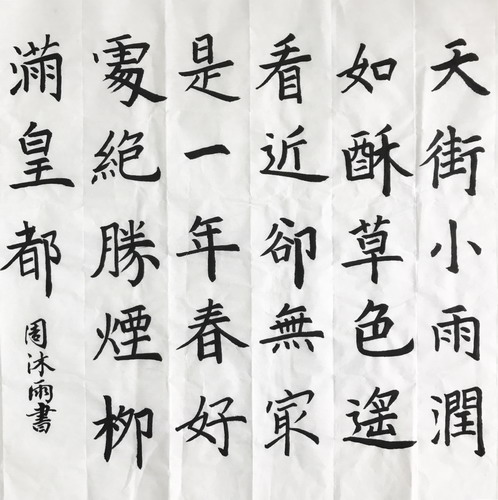 天街小雨潤
如酥草色遙
看近卻無㝡
是一年春好
處絕勝煙柳
滿皇都
周沐雨書